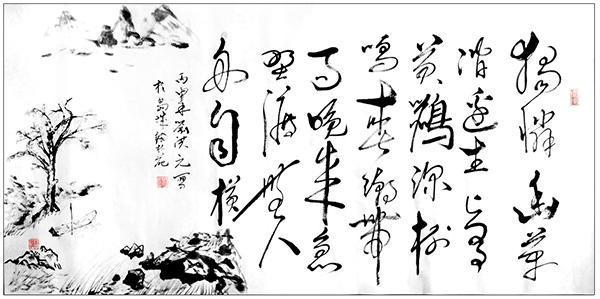 獨憐幽草
澗邊生上有
黃鸝深樹
鳴春潮帶
雨晚來急
野渡無人
舟自橫
丙申